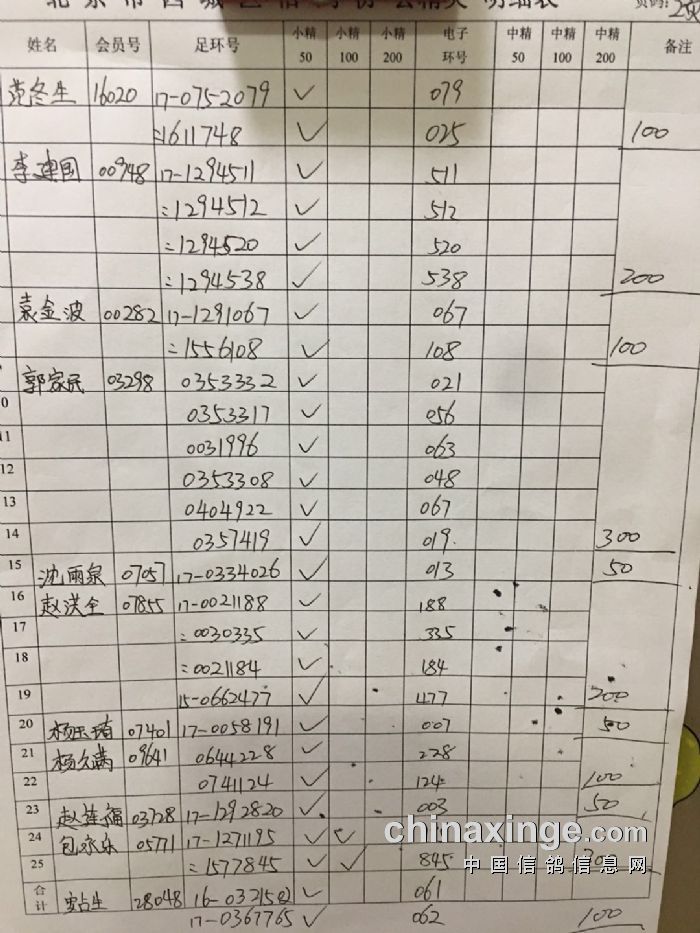 北京市西城区信
明细表
页码:
姓名 会员号 足环号 小精50 小精100 小精200 电子环号 中精50 中精100 中精200 备注
范冬生 16020 17-0752079 ✓ 079
=1611748 ✓ 025 100
李建国 00948 17-1294511 ✓ 511
=1294512 ✓ 512
=1294520 ✓ 520
=1294538 ✓ 538 200
袁金波 00282 17-1291067 ✓ 067
=1556108 ✓ 108 100
郭家民 03298 0353332 ✓ 021
0 0353317 ✓ 056
11 0031996 ✓ 063
12 0353308 ✓ 048
13 0404922 ✓ 067
14 0357419 ✓ 019. 300
15 沈雨泉 07057 17-0334026 ✓ 013 50
16 赵洪全 07855 17-0021188 ✓ 188
17 =0030335 ✓ 335
18 =0021184 ✓ 184
19 15-0662477 ✓ 477 200
20 07401 17-0058191 ✓ 007 50
21 杨久满 09641 0644228 ✓ 228
22 0741124 ✓ 124 100
23 赵连福 03728 17-1292820 ✓ 003 50
24 包永乐 05771 17-1271195 ✓ ✓
25 =1577845 ✓ ✓ 845
合计 28048 ✓ 061
17-0367765 ✓ 062 100
chinaxinge.com
中国信鸽信息网